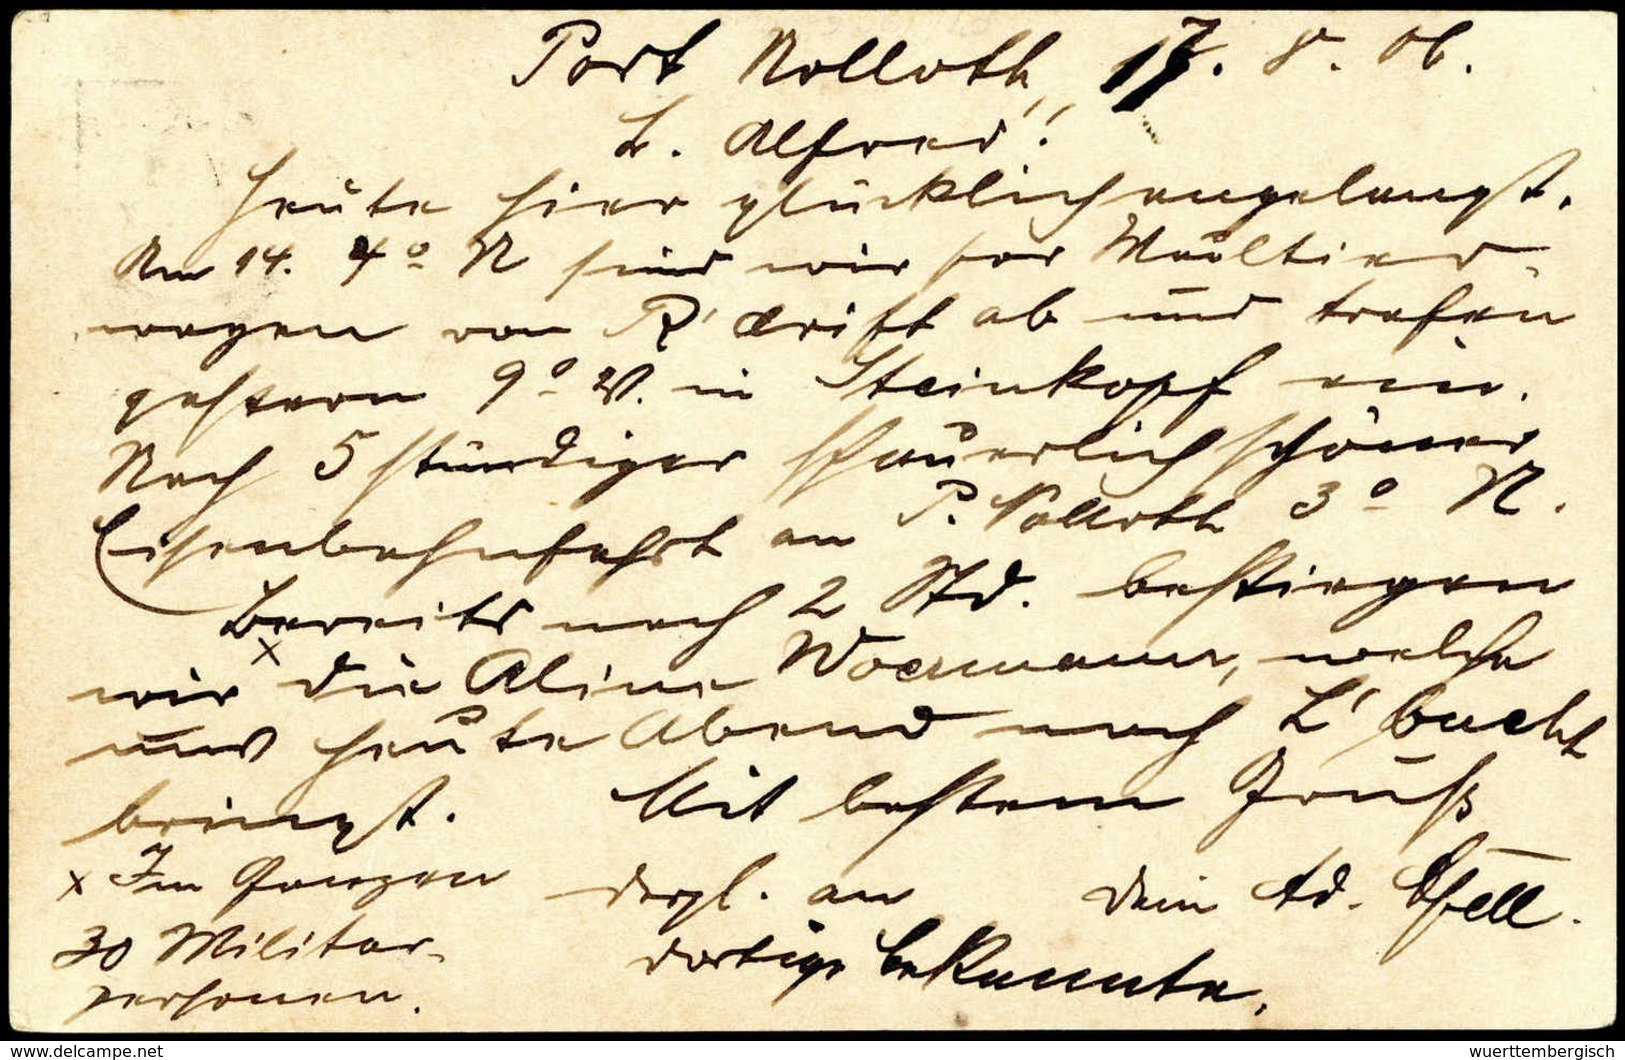 Port Nolloth, 17. 8. 06.
L. Alfred!
Heute hier glücklich angelangt.
Am 14. 4° N sind wir per Maultier-
wagen von R' drift ab und trafen
gestern 9° V. in Steinkopf ein.
Nach 5 stündiger schauerlich schöner
Eisenbahnfahrt an P. Nolloth 3° N.
Bereits nach 2 Std. bestiegen
wir x die Aline Woermann, welche
uns heute Abend nach L' bucht
bringt. Mit bestem Gruß
x Im Ganzen dergl. an Dein Ad.
30 Militär- dortige Bekannte.
personen.
delcampe.net
wuerttembergisch